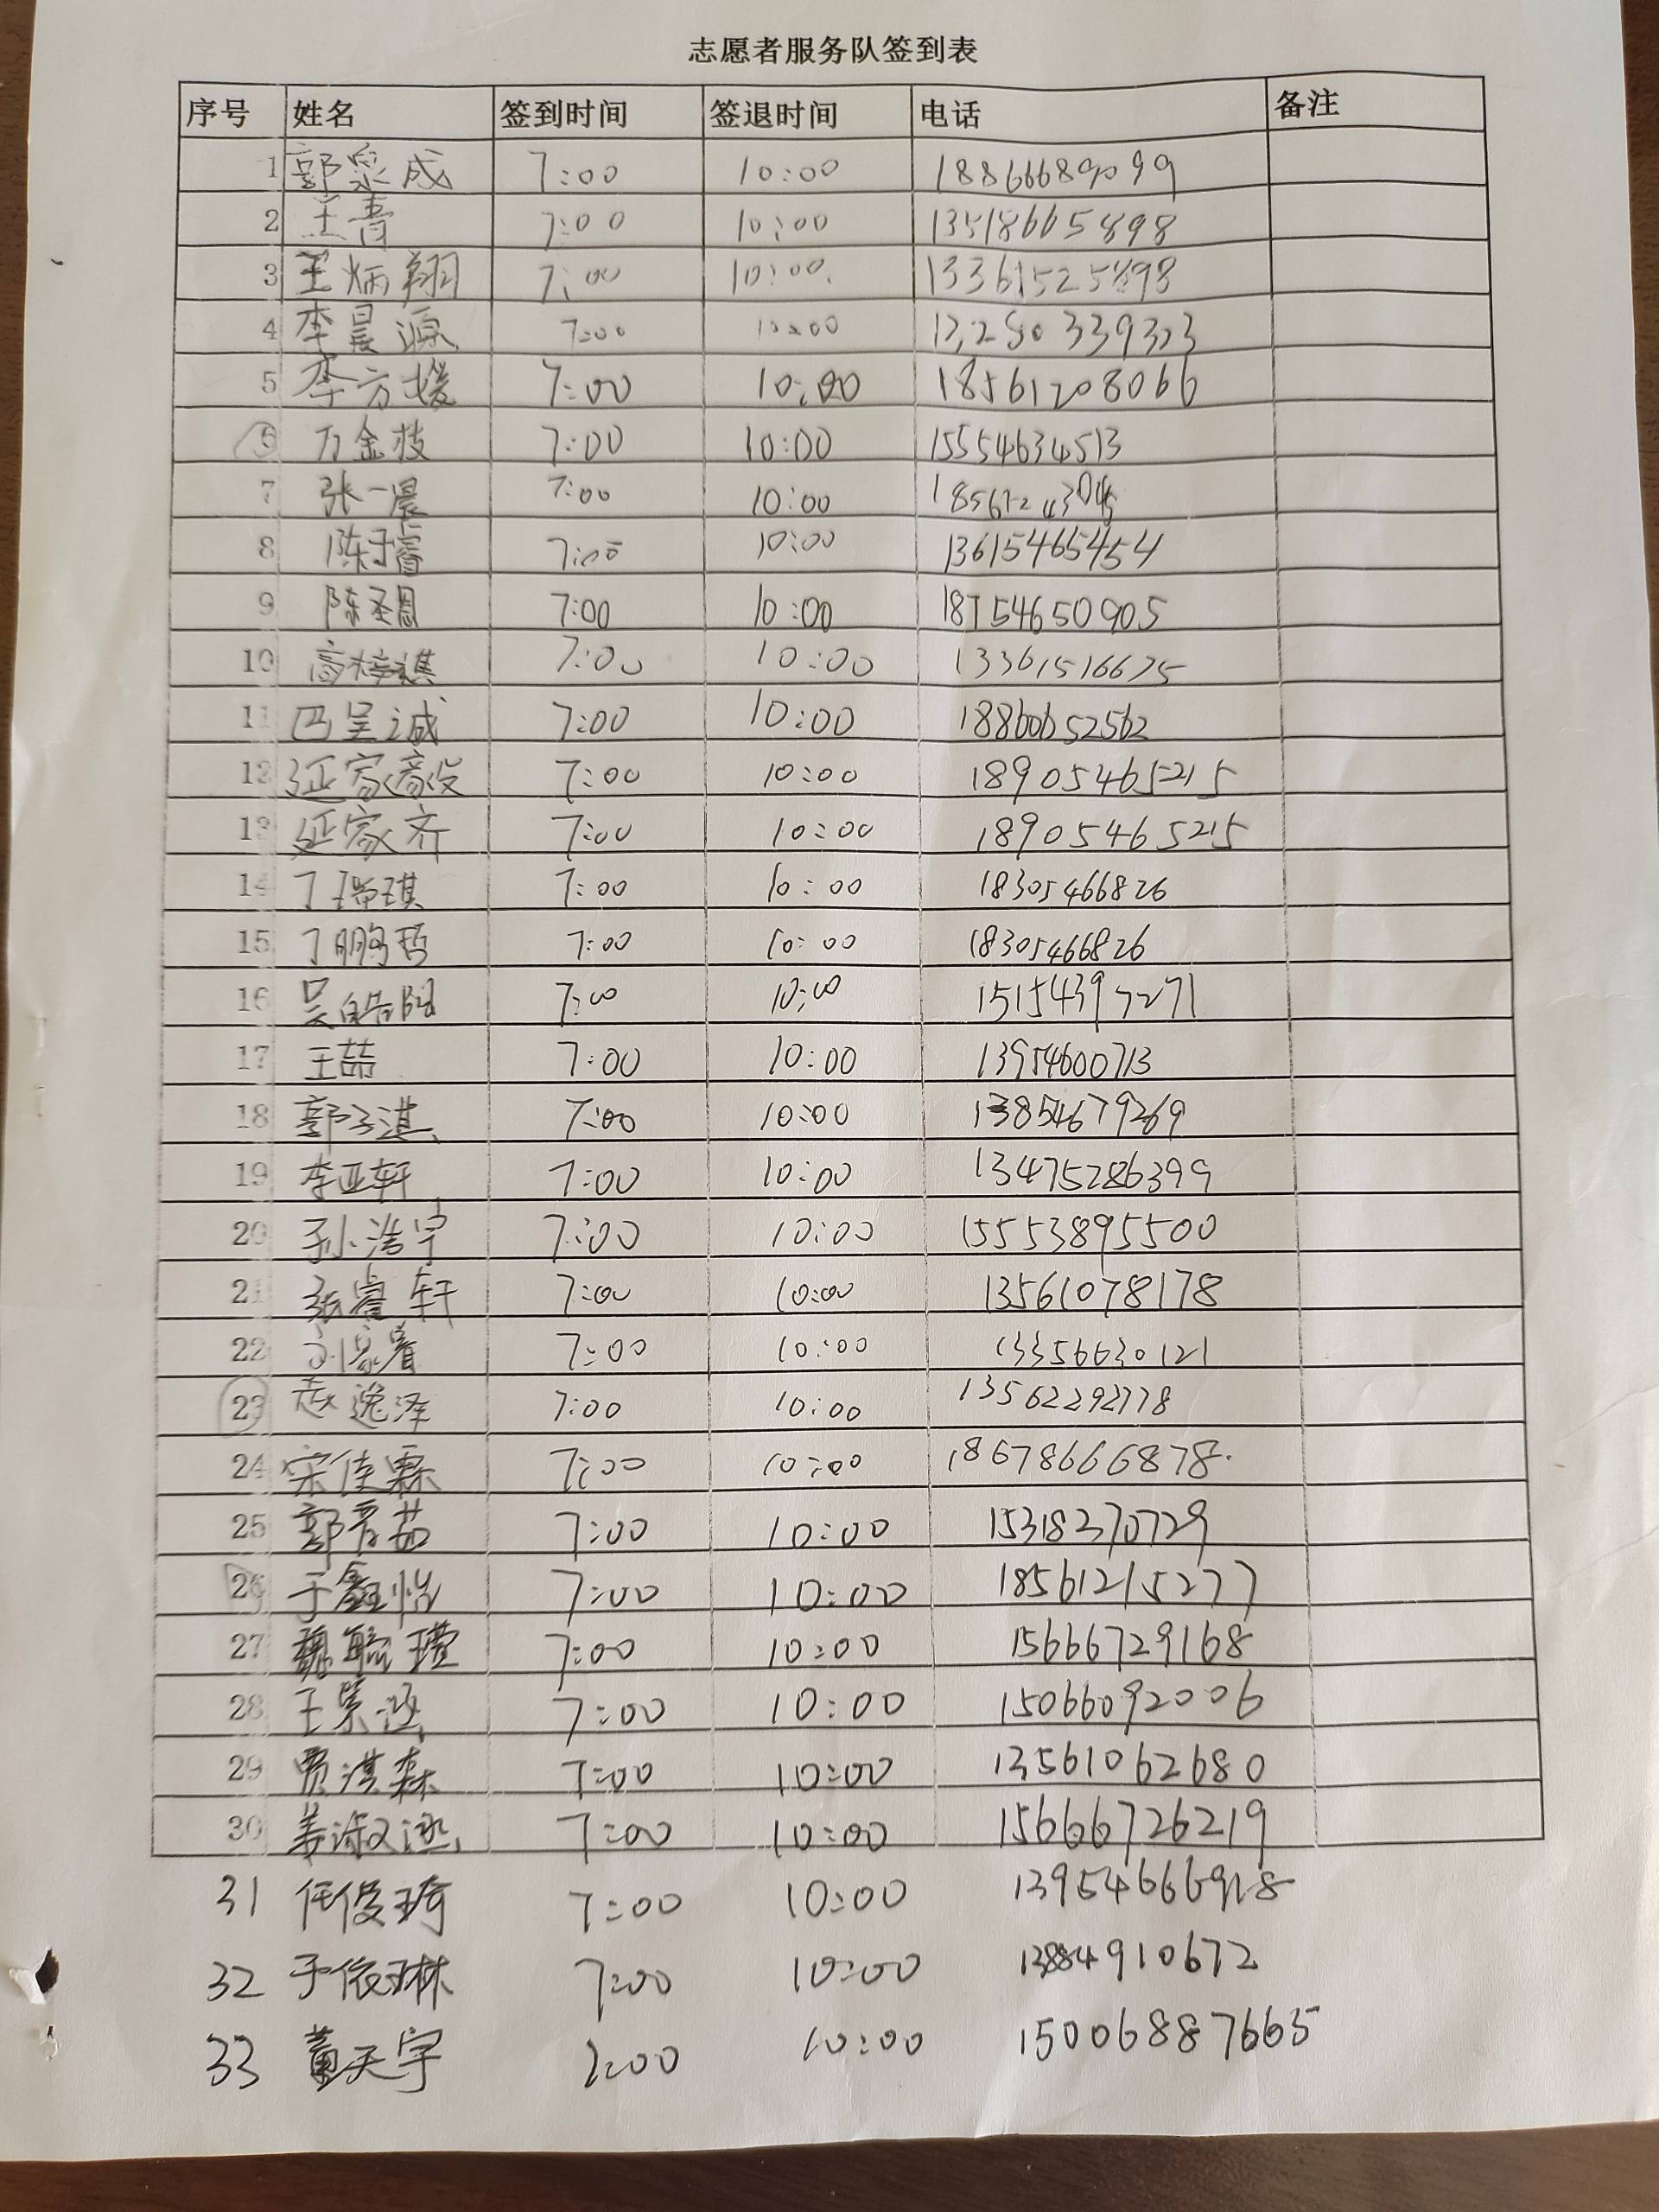 志愿者服务队签到表
序号 姓名 签到时间 签退时间 电话 备注
1 郭宗成 7:00 10:00 18866689099
2 王青 7:00 10:00 13518665898
3 王炳翔 7:00 10:00 13361525898
4 李晨源 7:00 10:00
5 李方媛 7:00 10:00 18561208066
6 万金枝 7:00 10:00 15554634513
7 张一晨 7:00 10:00
8 陈于睿 7:00 10:00 13615465454
9 陈圣恩 7:00 10:00 18754650905
10 高梓祺 7:00 10:00 13361516675
11 巴呈诚 7:00 10:00 18860652562
12 延家毅 7:00 10:00 18905465215
13 延家齐 7:00 10:00 18905465215
14 丁瑞琪 7:00 10:00 18305466826
15 丁鹏哲 7:00 10:00 18305466826
16 吴皓阳 7:00 10:00 15154397271
17 王喆 7:00 10:00 13954600713
18 郭子淇 7:00 10:00 13854679269
19 李亚轩 7:00 10:00 13475286399
20 孙浩宇 7:00 10:00 15553895500
21 张睿轩 7:00 10:00 13561078178
22 7:00 10:00 13356630121
23 赵逸泽 7:00 10:00 13562292778
24 宋佳霖 7:00 10:00 18678666878
25 郭 7:00 10:00 15318370729
26 于鑫怡 7:00 10:00 18561215277
27 魏毓瑾 7:00 10:00 15666729168
28 王景涵 7:00 10:00 15066092006
29 贾淇森 7:00 10:00 13561062680
30 姜淑涵 7:00 10:00 15666726219
31 任俊琦 7:00 10:00 13954666918
32 于依琳 7:00 10:00 13884910672
33 董天宇 7:00 10:00 15006887665